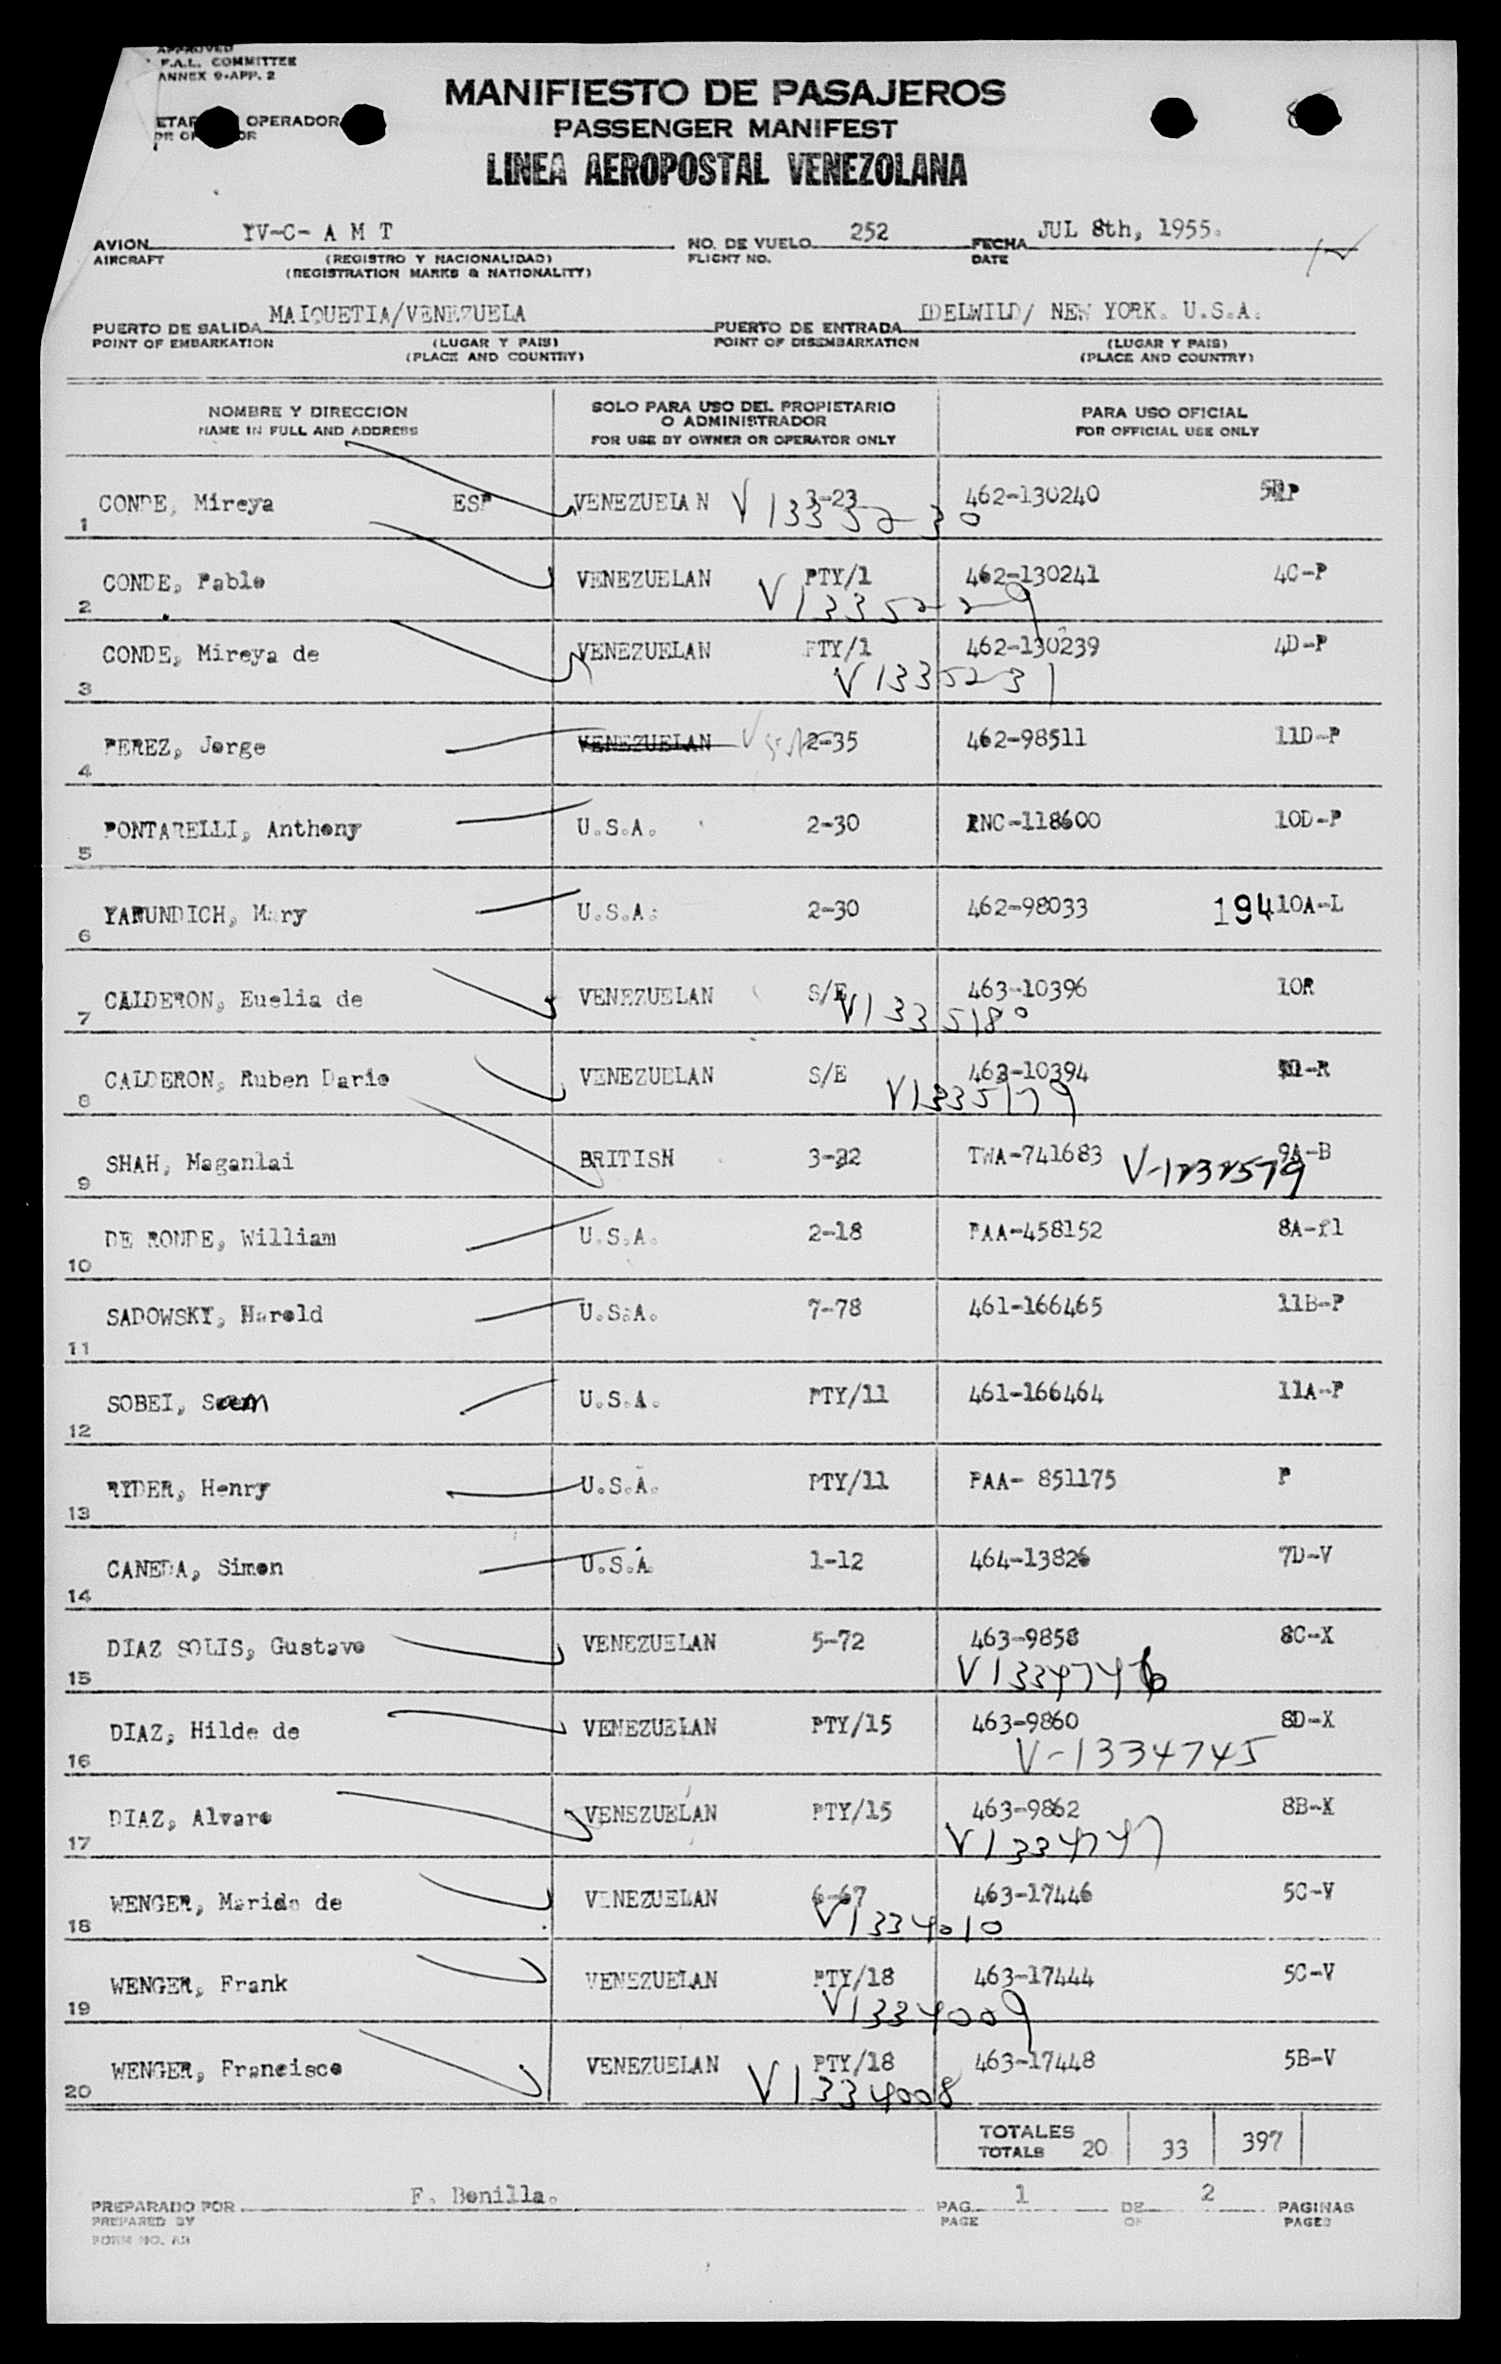 APPROVED
F.A.L. COMMITTEE
ANNEX 9-APP. 2
OPERADOR
MANIFIESTO DE PASAJEROS
PASSENGER MANIFEST
LINEA AEROPOSTAL VENEZOLANA
AVION YV-C- A M T NO. DE VUELO 252 FECHA JUL 8th, 1955.
AIRCRAFT (REGISTRO Y NACIONALIDAD) FLIGHT NO. DATE
(REGISTRATION MARKS & NATIONALITY)
PUERTO DE SALIDA MAIQUETIA/VENEZUELA PUERTO DE ENTRADA IDELWILD/ NEW YORK. U.S.A.
POINT OF EMBARKATION (LUGAR Y PAIS) POINT OF DISEMBARKATION (LUGAR Y PAIS)
(PLACE AND COUNTRY) (PLACE AND COUNTRY)
NOMBRE Y DIRECCION SOLO PARA USO DEL PROPIETARIO O ADMINISTRADOR PARA USO OFICIAL
NAME IN FULL AND ADDRESS FOR USE BY OWNER OR OPERATOR ONLY FOR OFFICIAL USE ONLY
1 CONDE, Mireya ESP VENEZUELAN 3-23 462-130240
V1335230
2 CONDE, Pablo VENEZUELAN PTY/1 462-130241 4C-P
V1335229
3 CONDE, Mireya de VENEZUELAN PTY/1 462-130239 4D-P
V1335231
4 PEREZ, Jorge VENEZUELAN 2-35 462-98511 11D-P
5 PONTARELLI, Anthony U.S.A. 2-30 RNC-118600 10D-P
6 YARUNDICH, Mary U.S.A. 2-30 462-98033 194 10A-L
7 CALDERON, Euelia de VENEZUELAN S/E 463-10396 10R
V1335180
8 CALDERON, Ruben Dario VENEZUELAN S/E 463-10394
V1335179
9 SHAH, Maganlai BRITISN 3-22 TWA-741683 9A-B
V-1232579
10 DE RONDE, William U.S.A. 2-18 PAA-458152 8A-fl
11 SADOWSKY, Harold U.S.A. 7-78 461-166465 11B-P
12 SOBEI, Sam U.S.A. PTY/11 461-166464 11A-P
13 RYDER, Henry U.S.A. PTY/11 PAA- 851175 P
14 CANEDA, Simon U.S.A 1-12 464-13826 7D-V
15 DIAZ SOLIS, Gustavo VENEZUELAN 5-72 463-9858 8C-X
V1334746
16 DIAZ, Hilda de VENEZUELAN PTY/15 463-9860 8D-X
V-1334745
17 DIAZ, Alvaro VENEZUELAN PTY/15 463-9862 8B-X
V1334747
18 WENGER, Marida de VENEZUELAN 6-67 463-17446 5C-V
V1334010
19 WENGER, Frank VENEZUELAN PTY/18 463-17444 5C-V
V1334009
20 WENGER, Francisco VENEZUELAN PTY/18 463-17448 5B-V
V1334008
TOTALES
TOTALS 20 33 397
PREPARADO POR F. Bonilla. PAG. 1 DE 2 PAGINAS
PREPARED BY PAGE OF PAGES
FORM NO.